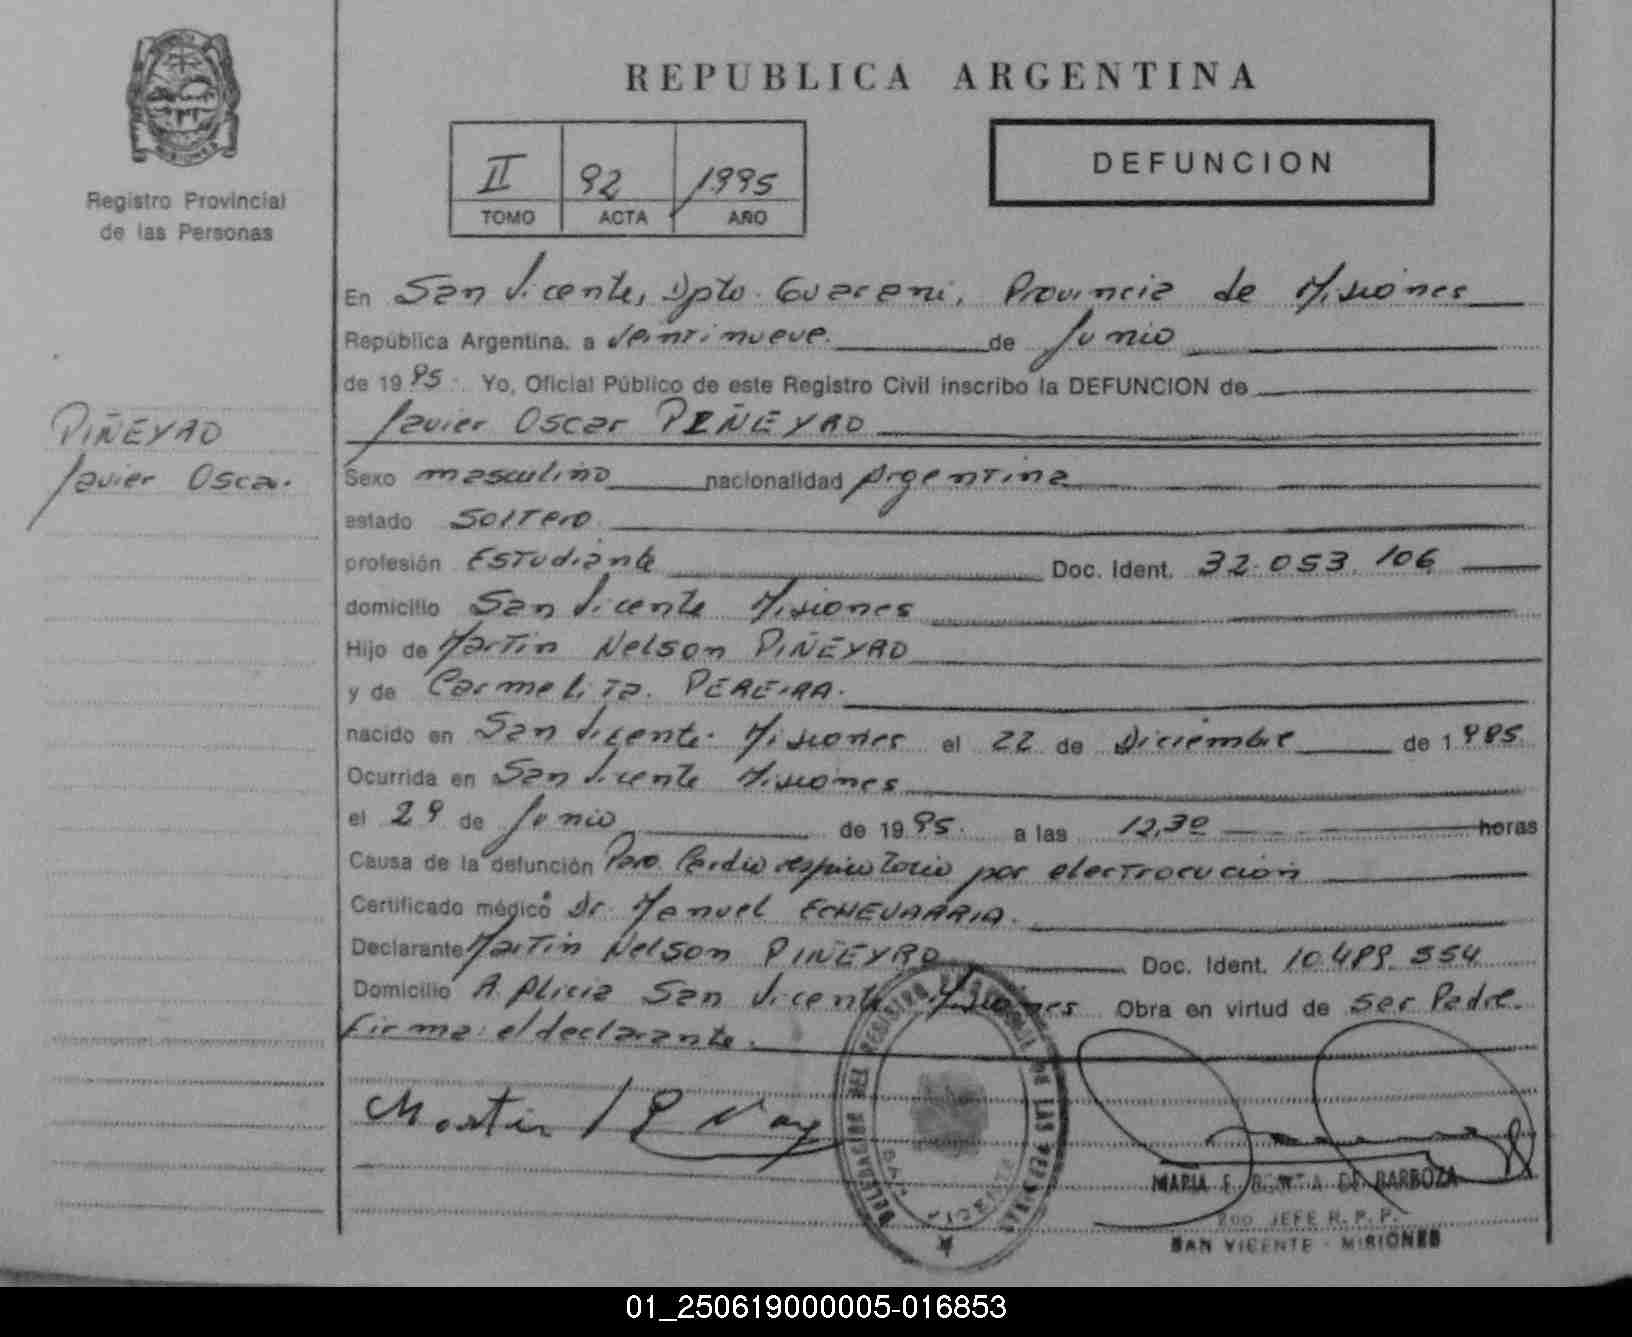 REPUBLICA ARGENTINA
MISIONES
Registro Provincial
de las Personas
II 92 1995
TOMO ACTA AÑO
DEFUNCION
En San Vicente, Dpto. Guarani, Provincia de Misiones
República Argentina, a veintinueve de Junio
de 1995. Yo, Oficial Público de este Registro Civil inscribo la DEFUNCION de
Javier Oscar PIÑEYRO
PIÑEYRO
Javier Oscar.
Sexo masculino nacionalidad Argentina
estado Soltero
profesión Estudiante Doc. Ident. 32.053.106
domicilio San Vicente Misiones
Hijo de Martin Nelson PIÑEYRO
y de Carmelita PEREIRA.
nacido en San Vicente Misiones el 22 de Diciembre de 1985
Ocurrida en San Vicente Misiones
el 29 de Junio de 1995. a las 12,30 horas
Causa de la defunción Paro Cardio respiratorio por electrocución
Certificado médico Dr. Manuel ECHEVARRIA.
Declarante Martin Nelson PIÑEYRO Doc. Ident. 10.489.554
Domicilio A. Alicia San Vicente Misiones Obra en virtud de ser Padre.
Firma: el declarante.
Martin
DELEGACION DEL REGISTRO PROVINCIAL DE LAS PERSONAS
SAN VICENTE
MARIA E. DE BARBOZA
2do JEFE R. P. P.
SAN VICENTE - MISIONES
01_250619000005-016853